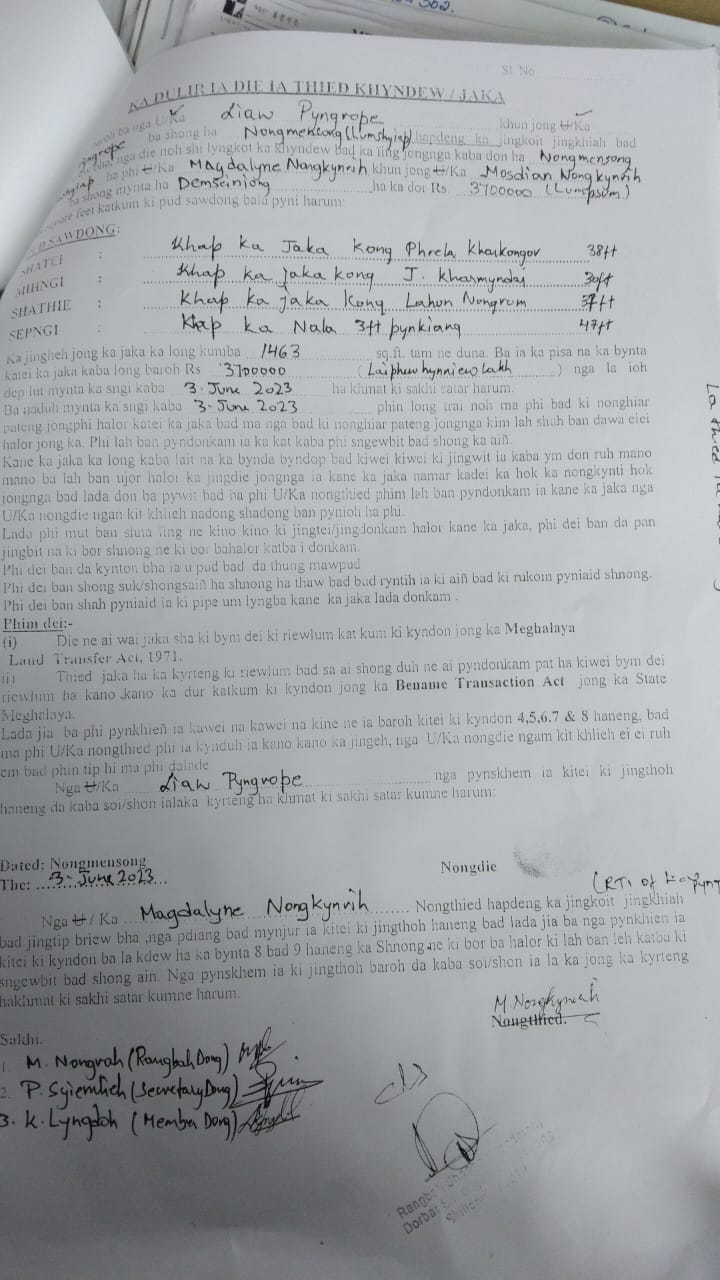 Sl. No
KA DULIR IA DIE IA THIED KHYNDEW / JAKA
ba nga U/Ka Liaw Pyngrope khun jong U/Ka
Pyngrope ba shong ha Nongmensong (Lumshyiap) hapdeng ka jingkoit jingkhiah bad
nga die noh shi lyngkot ka Khyndew bad ka iing jongnga kaba don ha Nongmensong
ha phi U/Ka Magdalyne Nongkynrih khun jong U/Ka Mosdian Nongkynrih
ba shong mynta ha Demseiniong ha ka dor Rs. 3700000 (Lumpsum)
square feet katkum ki pud sawdong bala pyni harum:
SAWDONG:
SHATEI : Khap ka Jaka Kong Phrela Kharkongor 38ft
MIHNGI : Khap ka jaka kong J. Kharmyndai 30ft
SHATHIE : Khap ka jaka Kong Lahun Nongrum 37ft
SEPNGI : Khap ka Nala 3ft pynkiang 47ft
Ka jingheh jong ka jaka ka long kumba 1463 sq.ft. tam ne duna. Ba ia ka pisa na ka bynta
katei ka jaka kaba long baroh Rs 3700000 (Laiphew hynniew lakh) nga la ioh
dep lut mynta ka sngi kaba 3. June 2023 ha khmat ki sakhi satar harum.
Ba naduh mynta ka sngi kaba 3. June 2023 phin long trai noh ma phi bad ki nonghiar
pateng jongphi halor katei ka jaka bad ma nga bad ki nonghiar pateng jongnga kim lah shuh ban dawa eiei
halor jong ka. Phi lah ban pyndonkam ia ka kat kaba phi sngewbit bad shong ka aiñ.
Kane ka jaka ka long kaba lait na ka bynda byndop bad kiwei kiwei ki jingwit ia kaba ym don ruh mano
mano ba lah ban ujor halor ka jingdie jongnga ia kane ka jaka namar kadei ka hok ka nongkynti hok
jongnga bad lada don ba pywit bad ba phi U/Ka nongthied phim lah ban pyndonkam ia kane ka jaka nga
U/Ka nongdie ngan kit khlieh nadong shadong ban pynioh ha phi.
Lada phi mut ban shna iing ne kino kino ki jingtei/jingdonkam halor kane ka jaka, phi dei ban da pan
jingbit na ki bor shnong ne ki bor bahalor katba i donkam.
Phi dei ban da kynton bha ia u pud bad da thung mawpud
Phi dei ban shong suk/shongsaiñ ha shnong ha thaw bad bud ryntih ia ki aiñ bad ki rukom pyniaid shnong.
Phi dei ban shah pyniaid ia ki pipe um lyngba kane ka jaka lada donkam .
Phim dei:-
(i) Die ne ai wai jaka sha ki bym dei ki riewlum kat kum ki kyndon jong ka Meghalaya
Land Transfer Act, 1971.
ii) Thied jaka ha ka kyrteng ki riewlum bad sa ai shong duh ne ai pyndonkam pat ha kiwei bym dei
riewlum ha kano kano ka dur katkum ki kyndon jong ka Bename Transaction Act jong ka State
Meghalaya.
Lada jia ba phi pynkhieñ ia kawei na kawei na kine ne ia baroh kitei ki kyndon 4,5,6.7 & 8 haneng, bad
ma phi U/Ka nongthied phi ia kynduh ia kano kano ka jingeh, nga U/Ka nongdie ngam kit khlieh ei ei ruh
em bad phin tip hi ma phi dalade
Nga U/Ka Liaw Pyngrope nga pynskhem ia kitei ki jingthoh
haneng da kaba soi/shon ialaka kyrteng ha khmat ki sakhi satar kumne harum:
Dated: Nongmensong
The: 3. June 2023
Nongdie
(RTI of
Nga U / Ka Magdalyne Nongkynrih Nongthied hapdeng ka jingkoit jingkhiah
bad jingtip briew bha ,nga pdiang bad mynjur ia kitei ki jingthoh haneng bad lada jia ba nga pynkhien ia
kitei ki kyndon ba la kdew ha ka bynta 8 bad 9 haneng ka Shnong ne ki bor ba halor ki lah ban leh katba ki
sngewbit bad shong ain. Nga pynskhem ia ki jingthoh baroh da kaba soi/shon ia la ka jong ka kyrteng
hakhmat ki sakhi satar kumne harum.
M. Nongkynrih
Nongthied.
Sakhi.
1. M. Nongrah (Rangbah Dong)
2. P. Syiemlieh (Secretary Dong)
3. K. Lyngdoh (Member Dong)